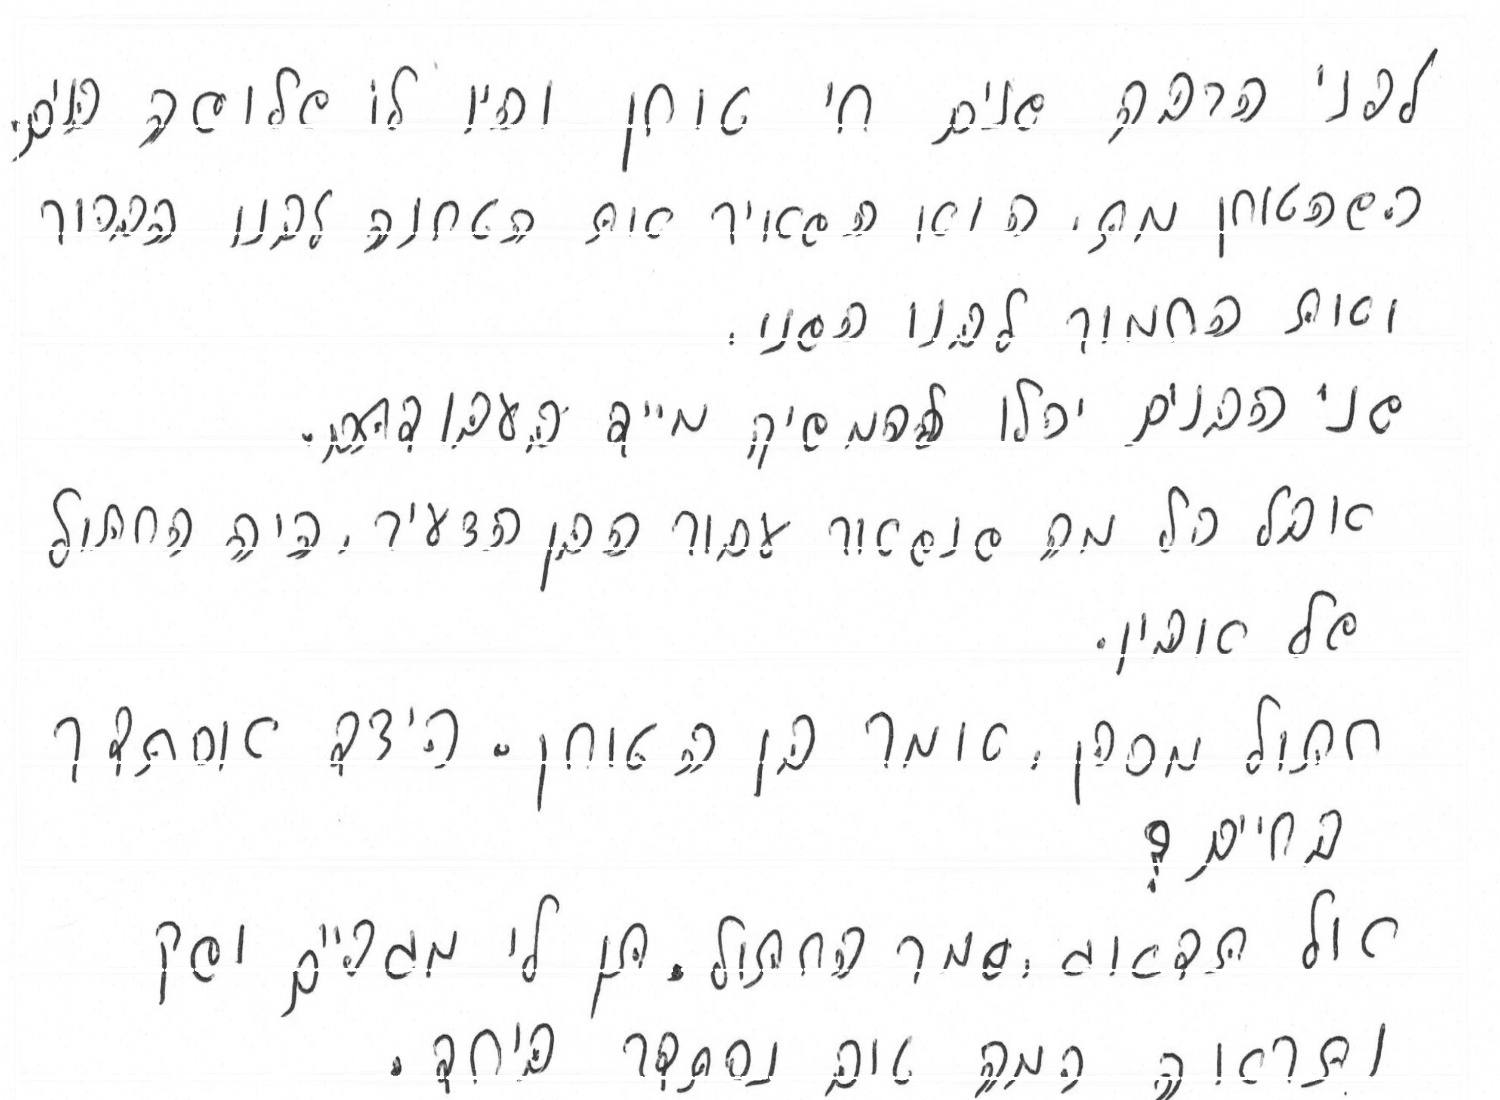 לפני הרבה שנים חי טוחן והיו לו שלושה בנים.
כשהטוחן מת, הוא השאיר את הטחנה לבנו הבכור
ואת החמור לבנו השני.
שני הבנים יכלו להמשיך מייד בעבודתם.
אבל כל מה שנשאר עבור הבן הצעיר, היה החתול
של אביו.
חתול מסכן, אמר בן הטוחן. כיצד אסתדר
בחיים?
אל תדאג, אמר החתול. תן לי מגפיים ושק
ותראה כמה טוב נסתדר ביחד.